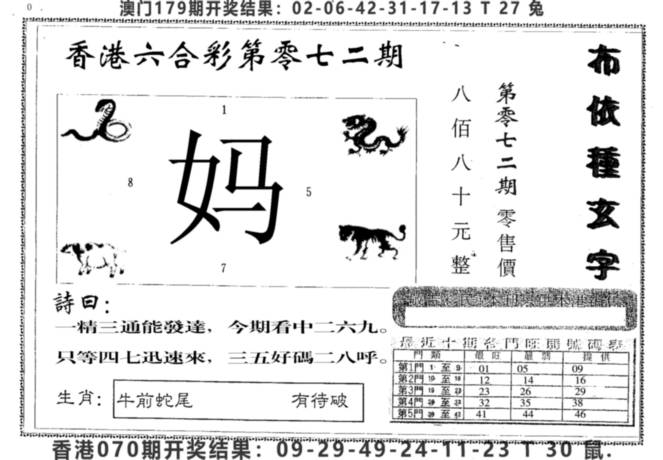 澳门179期开奖结果：02-06-42-31-17-13 T 27 兔
香港六合彩第零七二期
布依種玄字
第零七二期零售價
八佰八十元整
1
8
妈
5
7
詩曰：
一精三通能發達，今期看中二六九。
只等四七迅速來，三五好碼二八呼。
生肖：
牛前蛇尾 有待破
最近十期各門旺開號碼表
門類 最旺 提供
第1門 1 至 9 01 05 09
第2門 10 至 18 12 14 16
第3門 至 23 26 29
第4門 至 32 35 38
第5門 至 41 44 46
香港070期开奖结果：09-29-49-24-11-23 T 30 鼠.